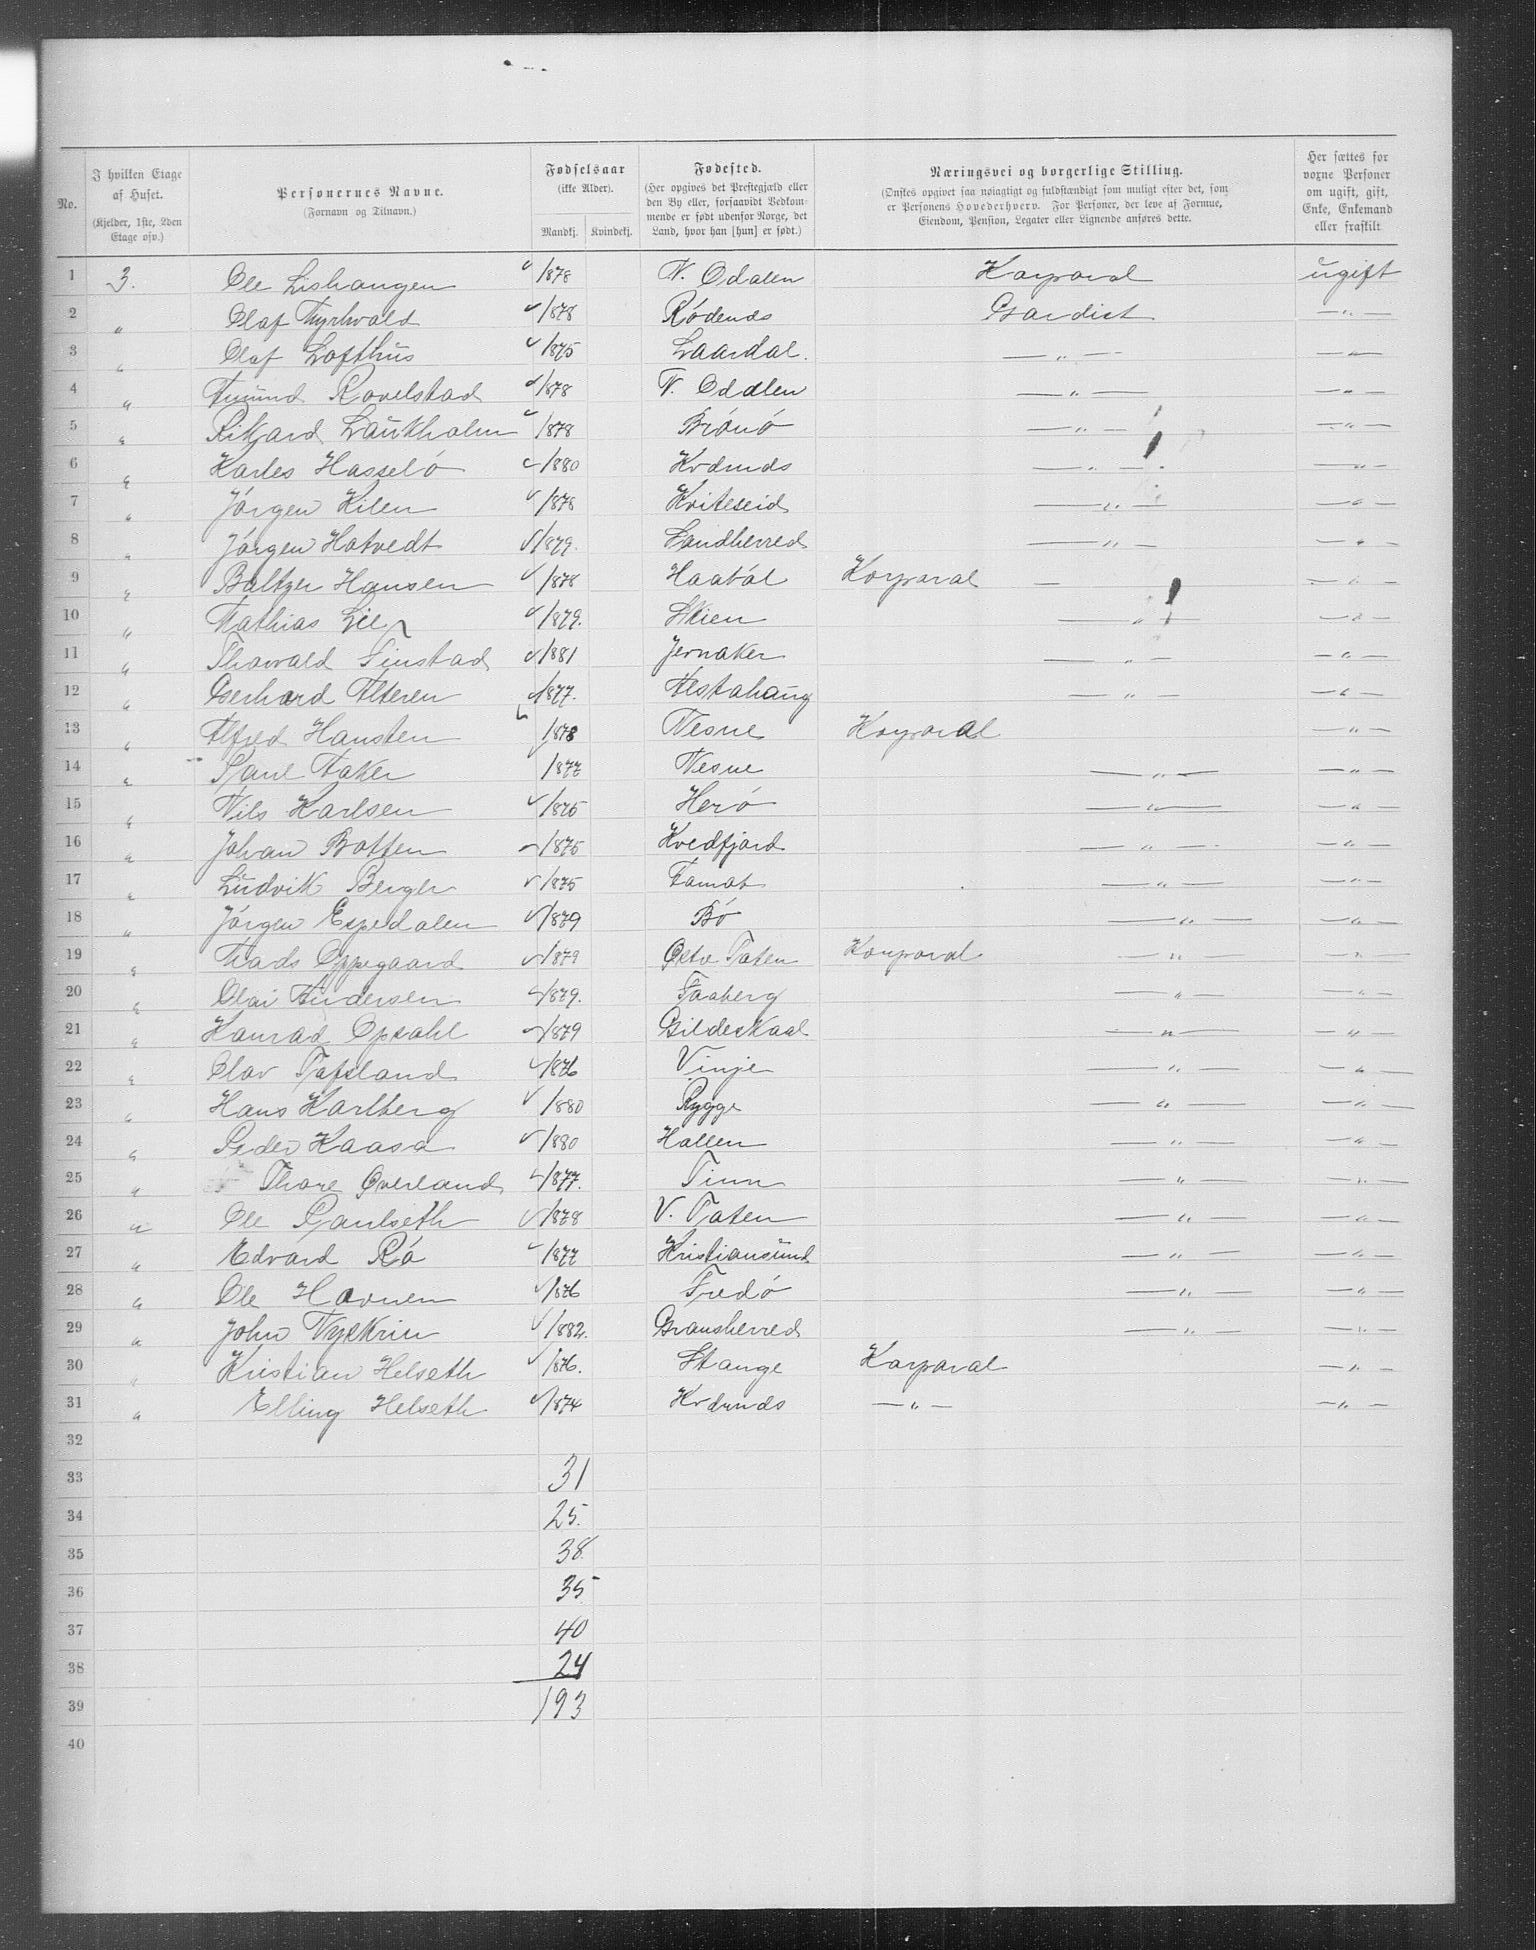 No.
I hvilken Etage af Huset. (Kjelder, 1ste, 2den Etage osv.)
Personernes Navne. (Fornavn og Tilnavn.)
Fødselsaar (ikke Alder). Mandkj. Kvindekj.
Fødested. (Her opgives det Prestegjæld eller den By eller, forsaavidt Vedkommende er født udenfor Norge, det Land, hvor han [hun] er født.)
Næringsvei og borgerlige Stilling. (Ønskes opgivet saa nøiagtigt og fuldstændigt som muligt efter det, som er Personens Hovederhverv. For Personer, der leve af Formue, Eiendom, Pension, Legater eller Lignende anføres dette.)
Her sættes for voxne Personer om ugift, gift, Enke, Enkemand eller fraskilt
1 3. Ole Lishaugen 1878 N. Odalen Korporal ugift
2 " Olaf Myrhvold 1878 Rødenes Gardist —"—
3 " Olaf Lofthus 1875 Laardal. —"— —"—
4 " Amund Rovelstad 1878 N. Odalen —"— —"—
5 " Rikard Laukholm 1878 Brönö —"— —"—
6 " Karles Hasselö 1880 Krdsnds —"— —"—
7 " Jörgen Kilen 1878 Kviteseid —"— —"—
8 " Jörgen Hatvedt 1879. Sandherred —"— —"—
9 " Baltzer Hansen 1878 Haaböl Korporal — —"—
10 " Mathias Lie 1879. Skien —"— —"—
11 " Thorvald Finstad 1881 Jevnaker —"— —"—
12 " Gerhard Alteren 1877. Alstahaug —"— —"—
13 " Alfred Hansten 1878 Nesne Korporal —"—
14 " Paul Aaker 1877 Nesne —"— —"—
15 " Nils Karlsen 1875 Herö —"— —"—
16 " Johan Botten 1875 Kvedfjord —"— —"—
17 " Ludvik Berger 1875 Aamot —"— —"—
18 " Jörgen Espedalen 1879 Bö —"— —"—
19 " Mads Oppegaard 1879 Østv Toten Korporal —"— —"—
20 " Olai Andersen 1879. Faaberg —"— —"—
21 " Konrad Opsahl 1879 Gildeskaal —"— —"—
22 " Olav 1876 Vinje —"— —"—
23 " Hans Karlberg 1880 Rygge —"— —"—
24 " Peder Kaasa 1880 Hollen —"— —"—
25 " Thore Øverland 1877. Tinn —"— —"—
26 " Ole Paulseth 1878 V. Toten —"— —"—
27 " Edvard Rö 1877 Kristiansund —"— —"—
28 " Ole Hovnen 1876 Fredö —"— —"—
29 " John 1882. Gransherred —"— —"—
30 " Kristian Helseth 1876. Stange Korporal —"—
31 " Elling Helseth 1874 Krdsnds —"— —"—
32
33 31
34 25.
35 38
36 35
37 40
38 24
39 193
40